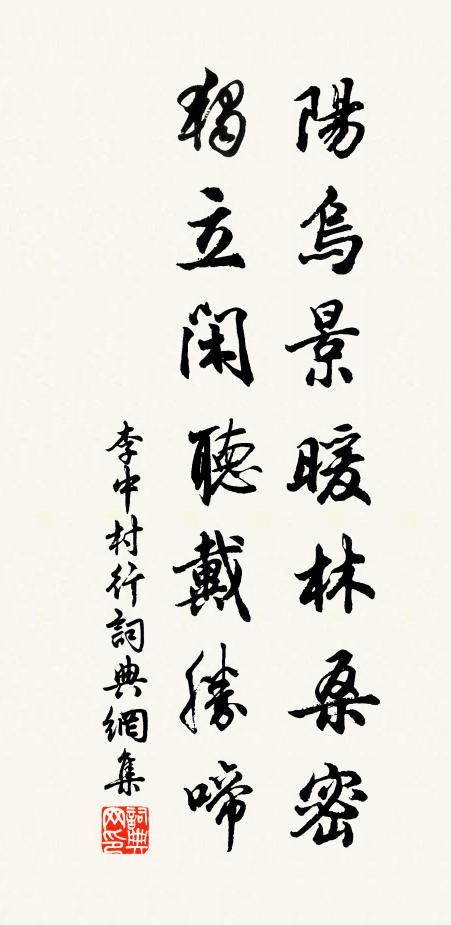 陽烏景暖林桑密
獨立閑聽戴勝啼
李中村行詞典網集
詞典网印